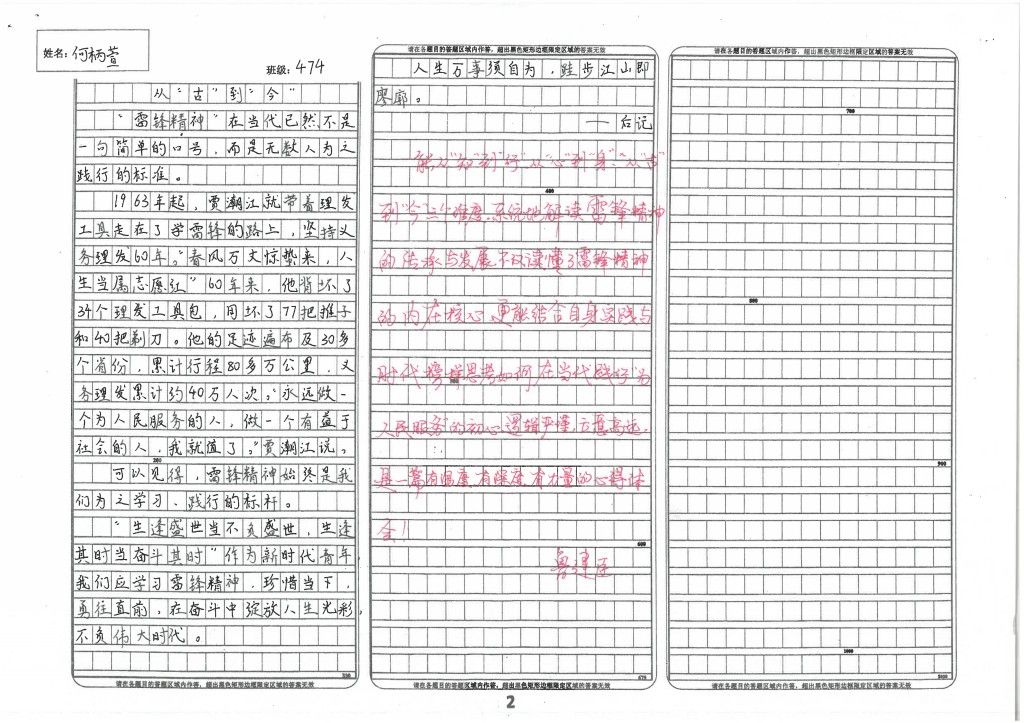 姓名：何柄萱
班级：474
从“古”到“今”
“雷锋精神”在当代已然不是
一句简单的口号，而是无数人为之
践行的标准。
1963年起，贾潮江就带着理发
工具走在了学雷锋的路上，坚持义
务理发60年。“春风万丈惊势来，人
生当属志愿红”60年来，他背坏了
34个理发工具包，用坏了77把推子
和40把剃刀。他的足迹遍布及30多
个省份，累计行程80多万公里，义
务理发累计约40万人次。“永远做一
个为人民服务的人，做一个有益于
社会的人，我就值了。”贾潮江说。
200
可以见得，雷锋精神始终是我
们为之学习、践行的标杆。
“生逢盛世当不负盛世，生逢
其时当奋斗其时”作为新时代青年，
我们应学习雷锋精神，珍惜当下，
勇往直前，在奋斗中绽放人生光彩，
不负伟大时代。
请在各题目的答题区域内作答，超出黑色矩形边框限定区域的答案无效
请在各题目的答题区域内作答，超出黑色矩形边框限定区域的答案无效
人生万事须自为，跬步江山即
寥廓。
——后记
能从“知”到“行”从“心”到“身”、“从“古”
400
到“今”三个维度，系统地解读雷锋精神
的传承与发展，不仅读懂了雷锋精神
的内在核心，更能结合自身实践与
时代榜样思考如何在当代践行“为
人民服务”的初心，逻辑严谨，立意高远，
是一篇有温度、有深度、有力量的心得体
会！
600
鲁建臣
请在各题目的答题区域内作答，超出黑色矩形边框限定区域的答案无效
请在各题目的答题区域内作答，超出黑色矩形边框限定区域的答案无效
700
800
900
1000
请在各题目的答题区域内作答，超出黑色矩形边框限定区域的答案无效
2